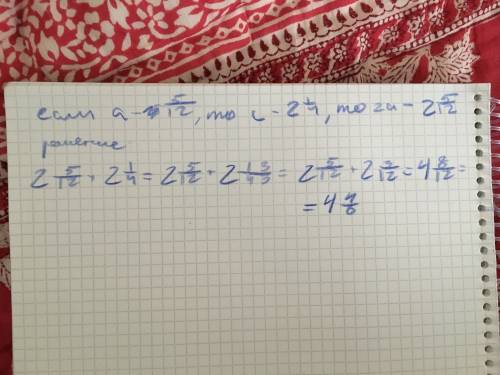 если a - 5/12, то c - 2 1/4, то 2a - 2 5/12
решение
2 5/12 + 2 1/4 = 2 5/12 + 2 1 3/4 3 = 2 5/12 + 2 3/12 = 4 8/12 =
= 4 4/6